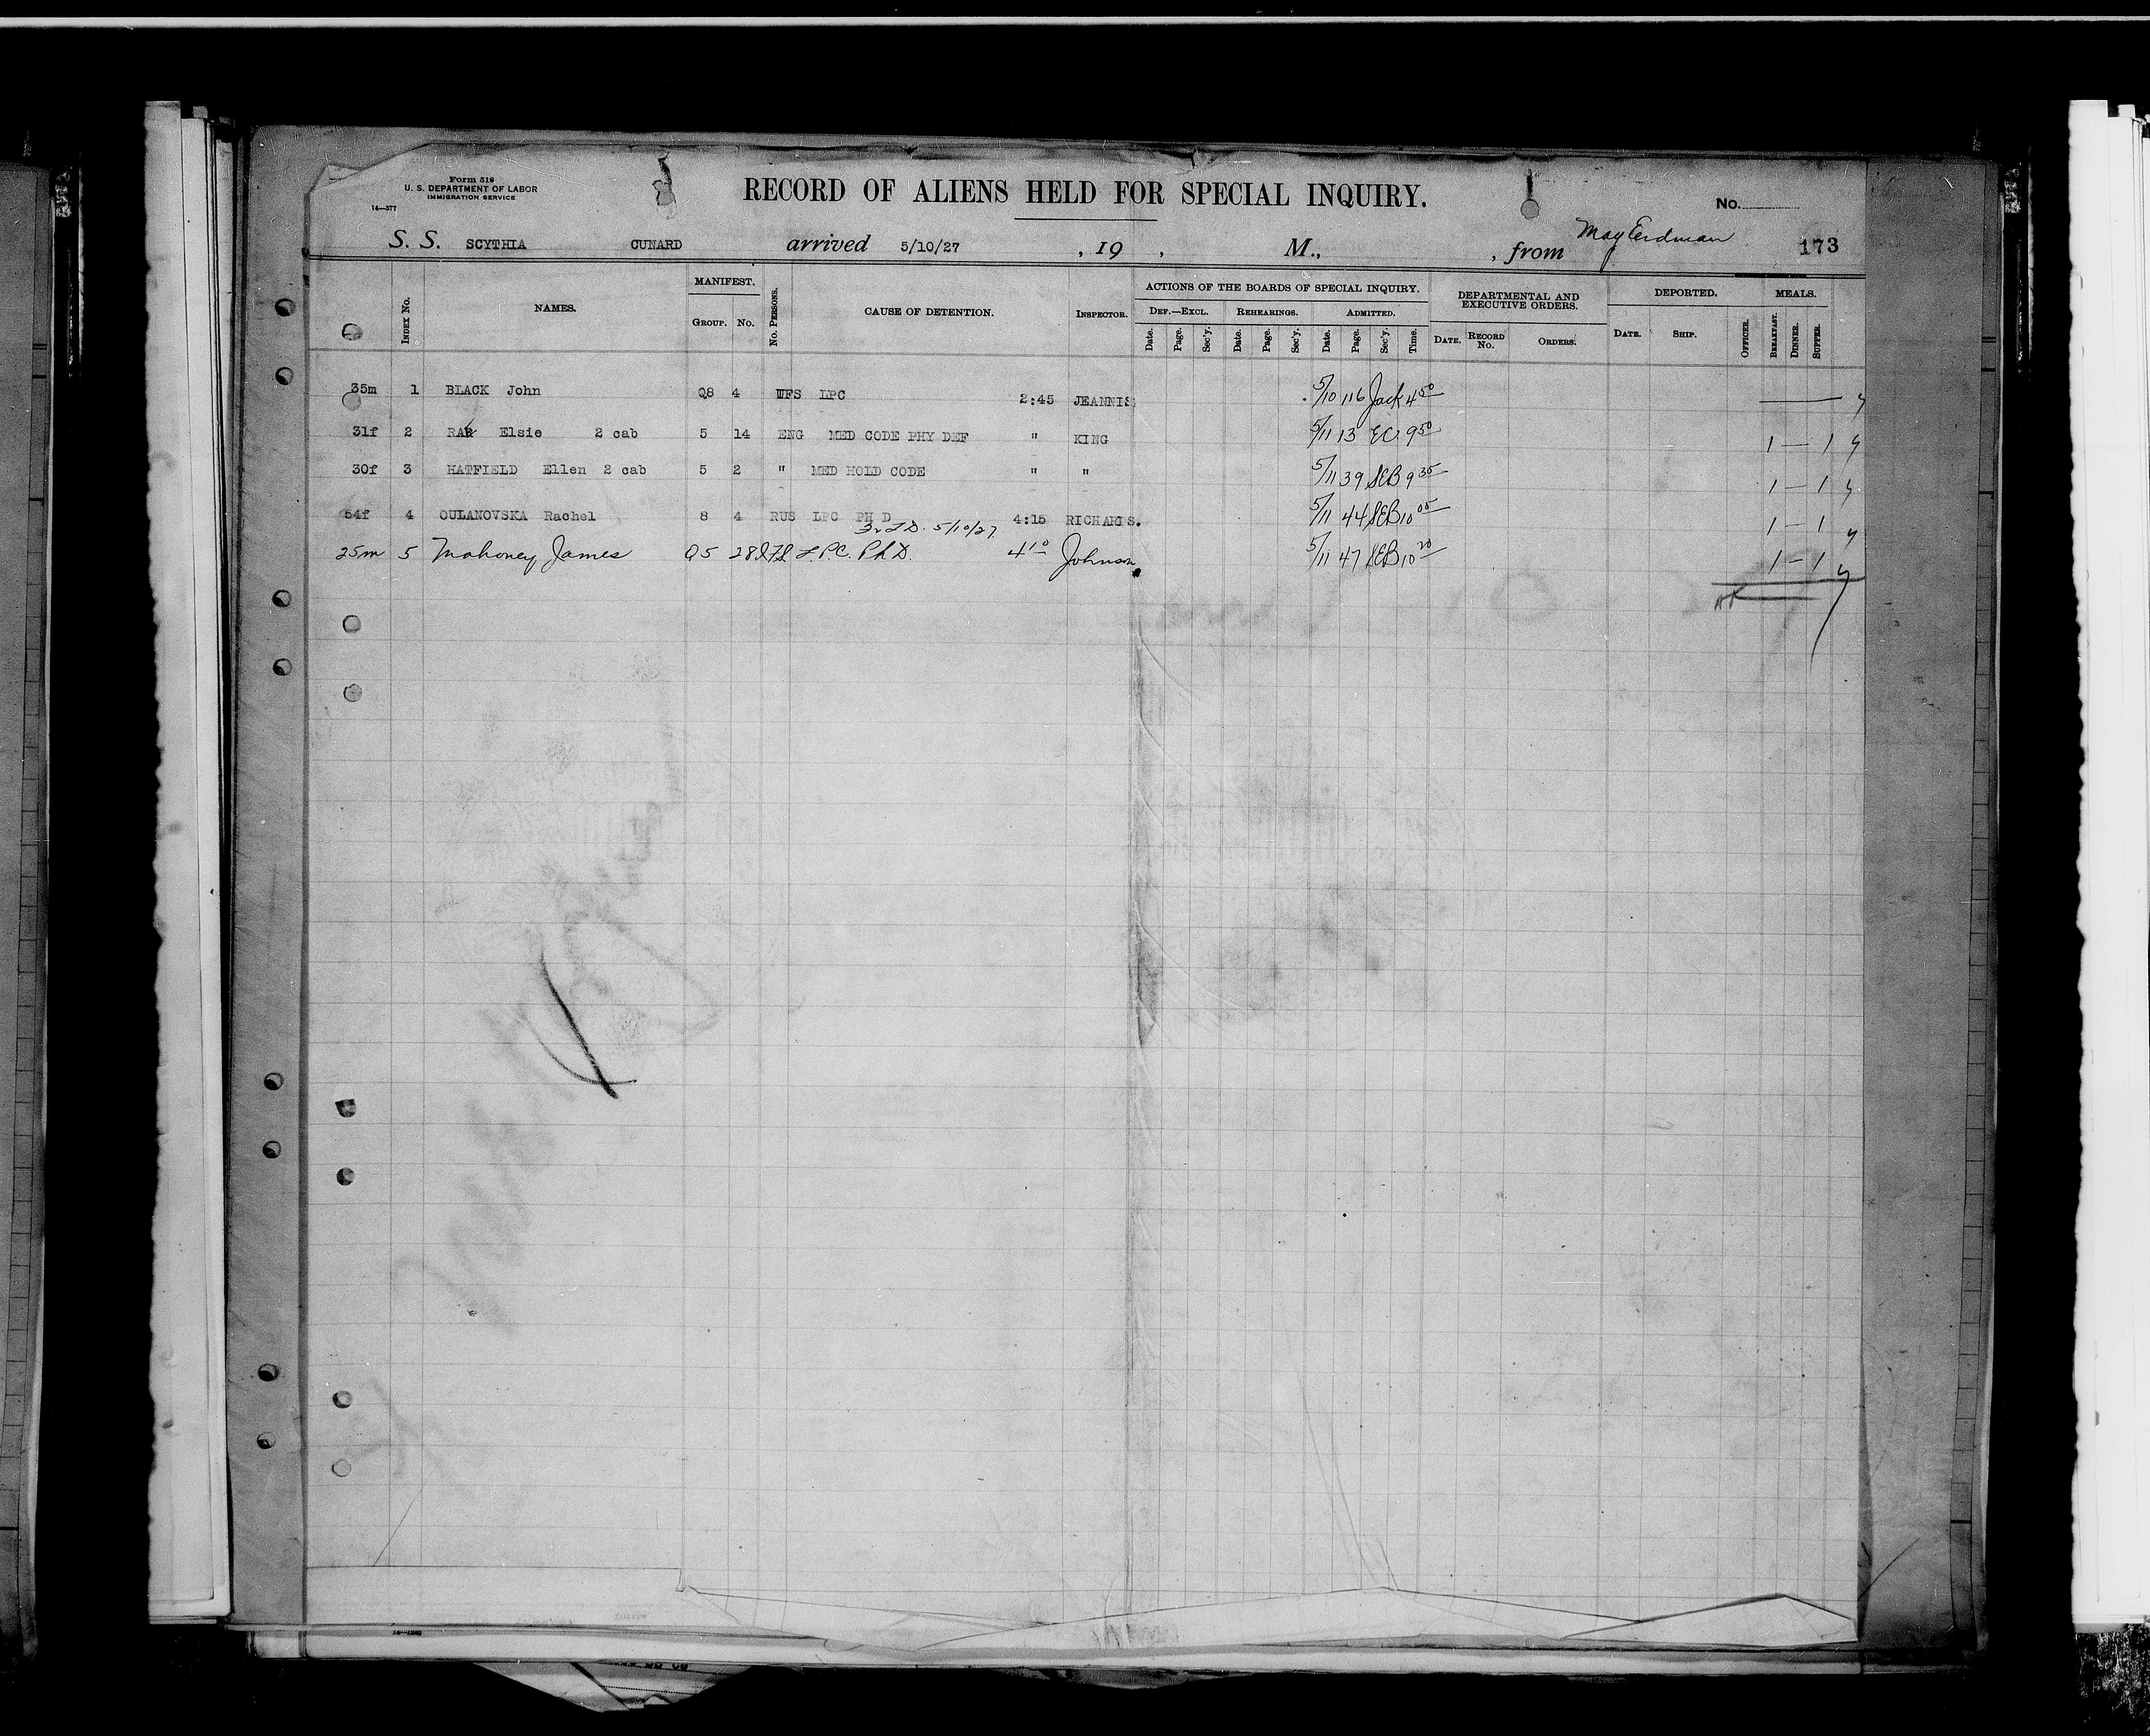 Form 518
U. S. DEPARTMENT OF LABOR
IMMIGRATION SERVICE
14—377
RECORD OF ALIENS HELD FOR SPECIAL INQUIRY.
No.
S. S. SCYTHIA CUNARD arrived 5/10/27 , 19 , M., , from May Erdman 173
INDEX No. NAMES. MANIFEST. GROUP. No. No. PERSONS. CAUSE OF DETENTION. INSPECTOR. ACTIONS OF THE BOARDS OF SPECIAL INQUIRY. DEPARTMENTAL AND EXECUTIVE ORDERS. DEPORTED. MEALS.
DEF.—EXCL. REHEARINGS. ADMITTED.
Date. Page. Sec'y. Date. Page. Sec'y. Date. Page. Sec'y. Time. DATE. RECORD No. ORDERS. DATE. SHIP. OFFICER. BREAKFAST. DINNER. SUPPER.
35m 1 BLACK John Q8 4 IFS LPC 2:45 JEANNIS 5/10 116 Jack 4 50
31f 2 Elsie 2 cab 5 14 ENG MED CODE PHY DEF " KING 5/11 13 EC 9 50 1 — 1
30f 3 HATFIELD Ellen 2 cab 5 2 " MED HOLD CODE " " 5/11 39 SEB 9 35 1 — 1
54f 4 OULANOVSKA Rachel 8 4 RUS LPC PH D 4:15 RICHARDS. 5/11 44 SEB 10 05 1 — 1
5/10/27
25m 5 Mahoney James Q5 28 L.P.C. Ph D. 4 10 Johnson 5/11 47 SEB 10 20 1 — 1